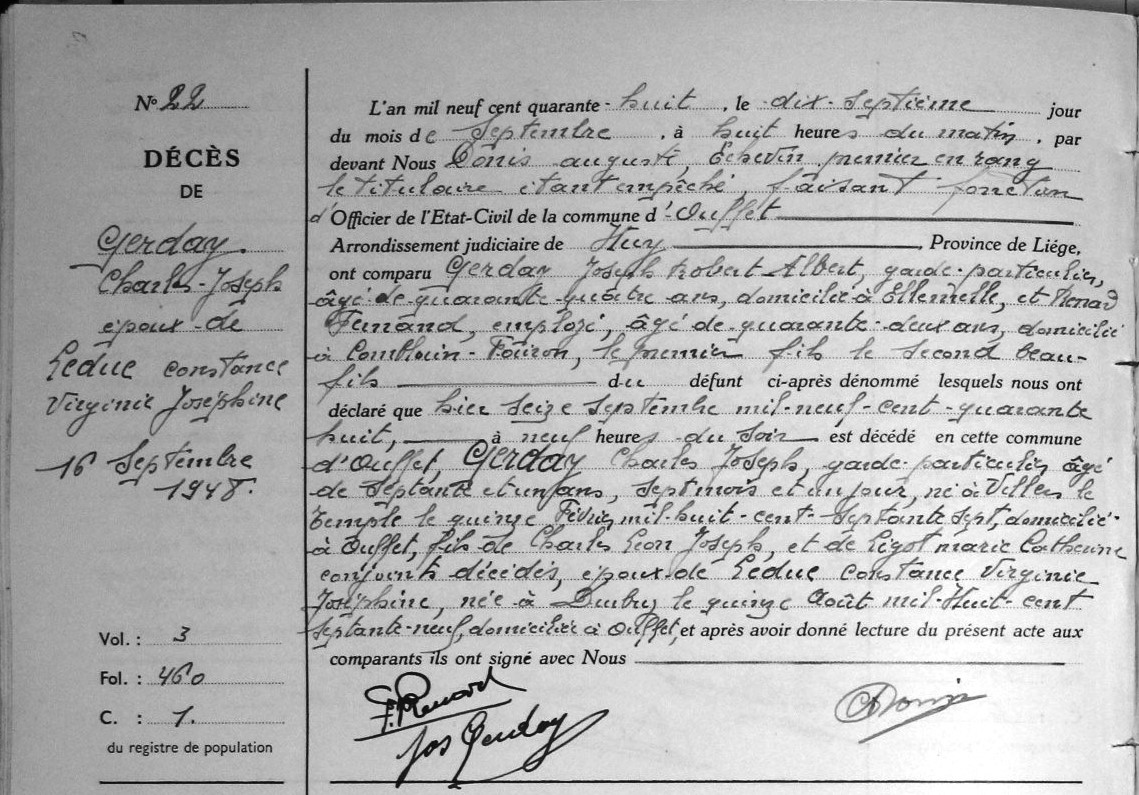 N° 22
DÉCÈS
DE
Gerday
Charles-Joseph
époux-de
Leduc Constance
Virginie Joséphine
16 Septembre
1948.
Vol. : 3
Fol. : 460
C. : 1.
du registre de population
L'an mil neuf cent quarante-huit, le dix-septième jour
du mois de Septembre, à huit heures du matin, par
devant Nous Donis auguste, Echevin premier en rang
le titulaire étant empêché, faisant fonction
d'Officier de l'Etat-Civil de la commune d'Ouffet
Arrondissement judiciaire de Huy, Province de Liége,
ont comparu Gerday Joseph Robert Albert, garde-particulier,
âgé-de-quarante-quatre ans, domicilié à Ellemelle, et Renard
Fernand, employé, âgé-de-quarante-deux ans, domicilié
à Comblain-Fairon, le premier fils le second beau-
fils du défunt ci-après dénommé lesquels nous ont
déclaré que hier seize septembre mil-neuf-cent-quarante
huit, à neuf heures du soir est décédé en cette commune
d'Ouffet, Gerday Charles Joseph, garde-particulier, âgé
de septante et un ans, sept mois et un jour, né à Villers le
Temple le quinze Février mil-huit-cent-septante sept, domicilié
à Ouffet, fils-de Charles Léon Joseph, et de Ligot marie Catherine
conjoints décédés, époux-de Leduc Constance Virginie
Joséphine, née à Durbuy le quinze Août mil-Huit-cent
septante-neuf, domiciliée à Ouffet, et après avoir donné lecture du présent acte aux
comparants ils ont signé avec Nous
F. Renard
Jos Gerday
ADonis